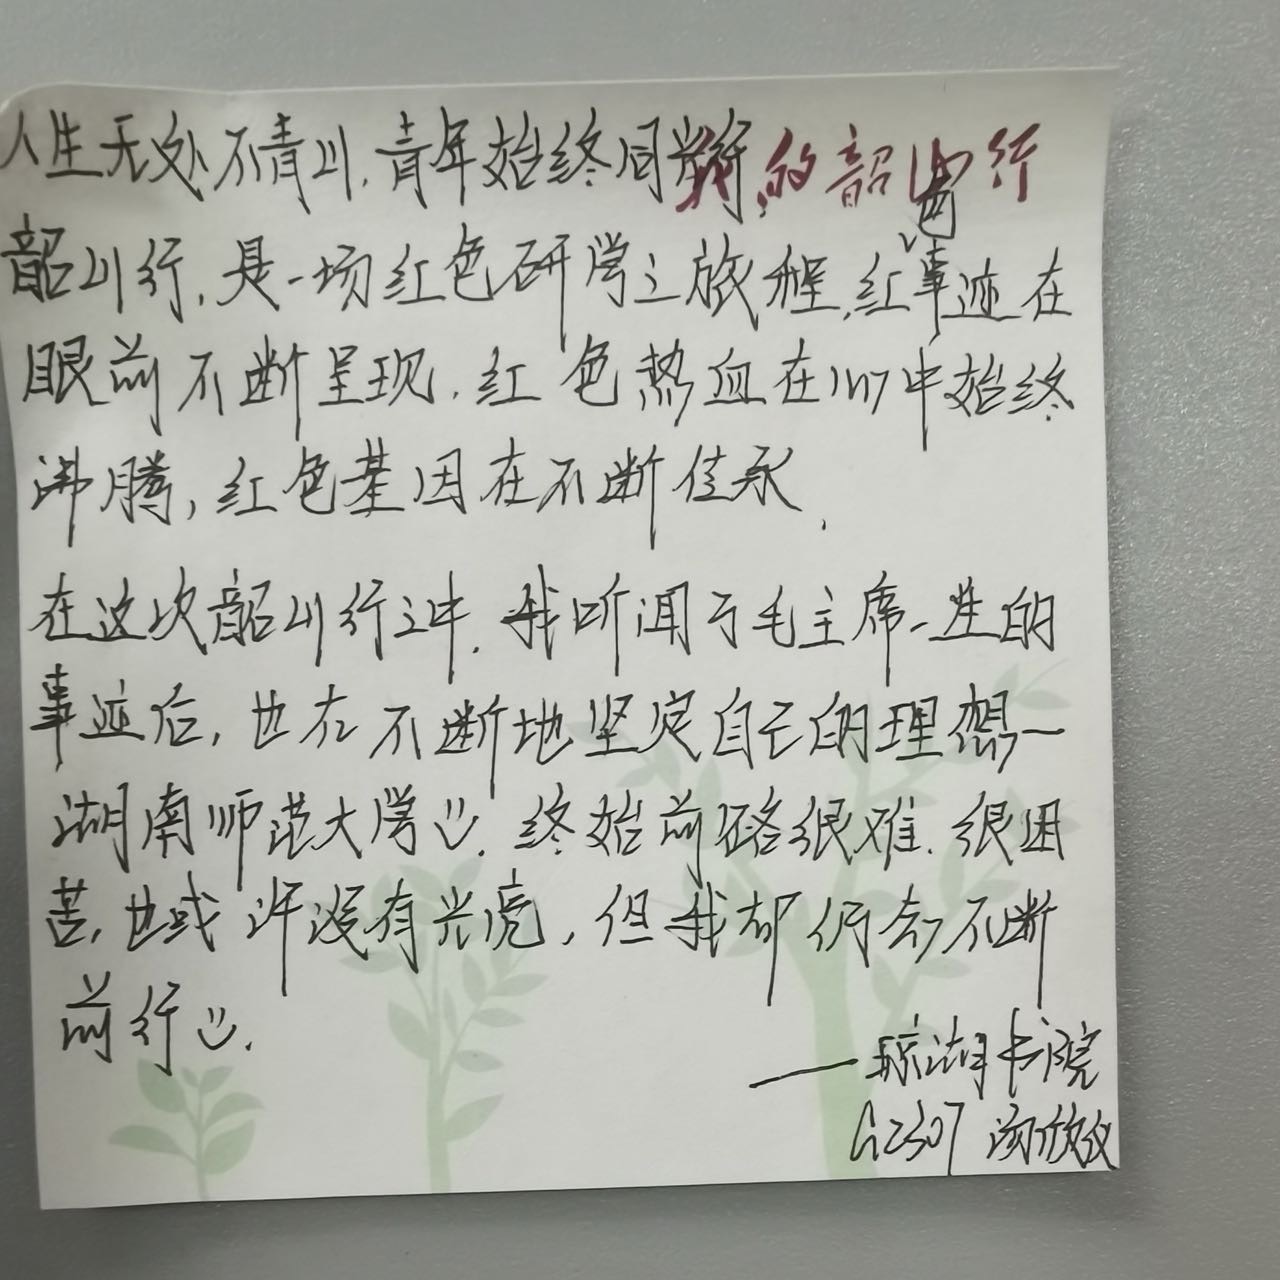 人生无处不青山,青年始终同步行 我的韶山行
韶山行,是一场红色研学之旅程,红色事迹在
眼前不断呈现,红色热血在心中始终
沸腾,红色基因在不断传承.
在这次韶山行之中,我听闻了毛主席一生的
事迹后,也在不断地坚定自己的理想—
湖南师范大学.终始前路很难,很困
苦,也或许没有光亮,但我却仍会不断
前行.
——琼湖书院
G2307